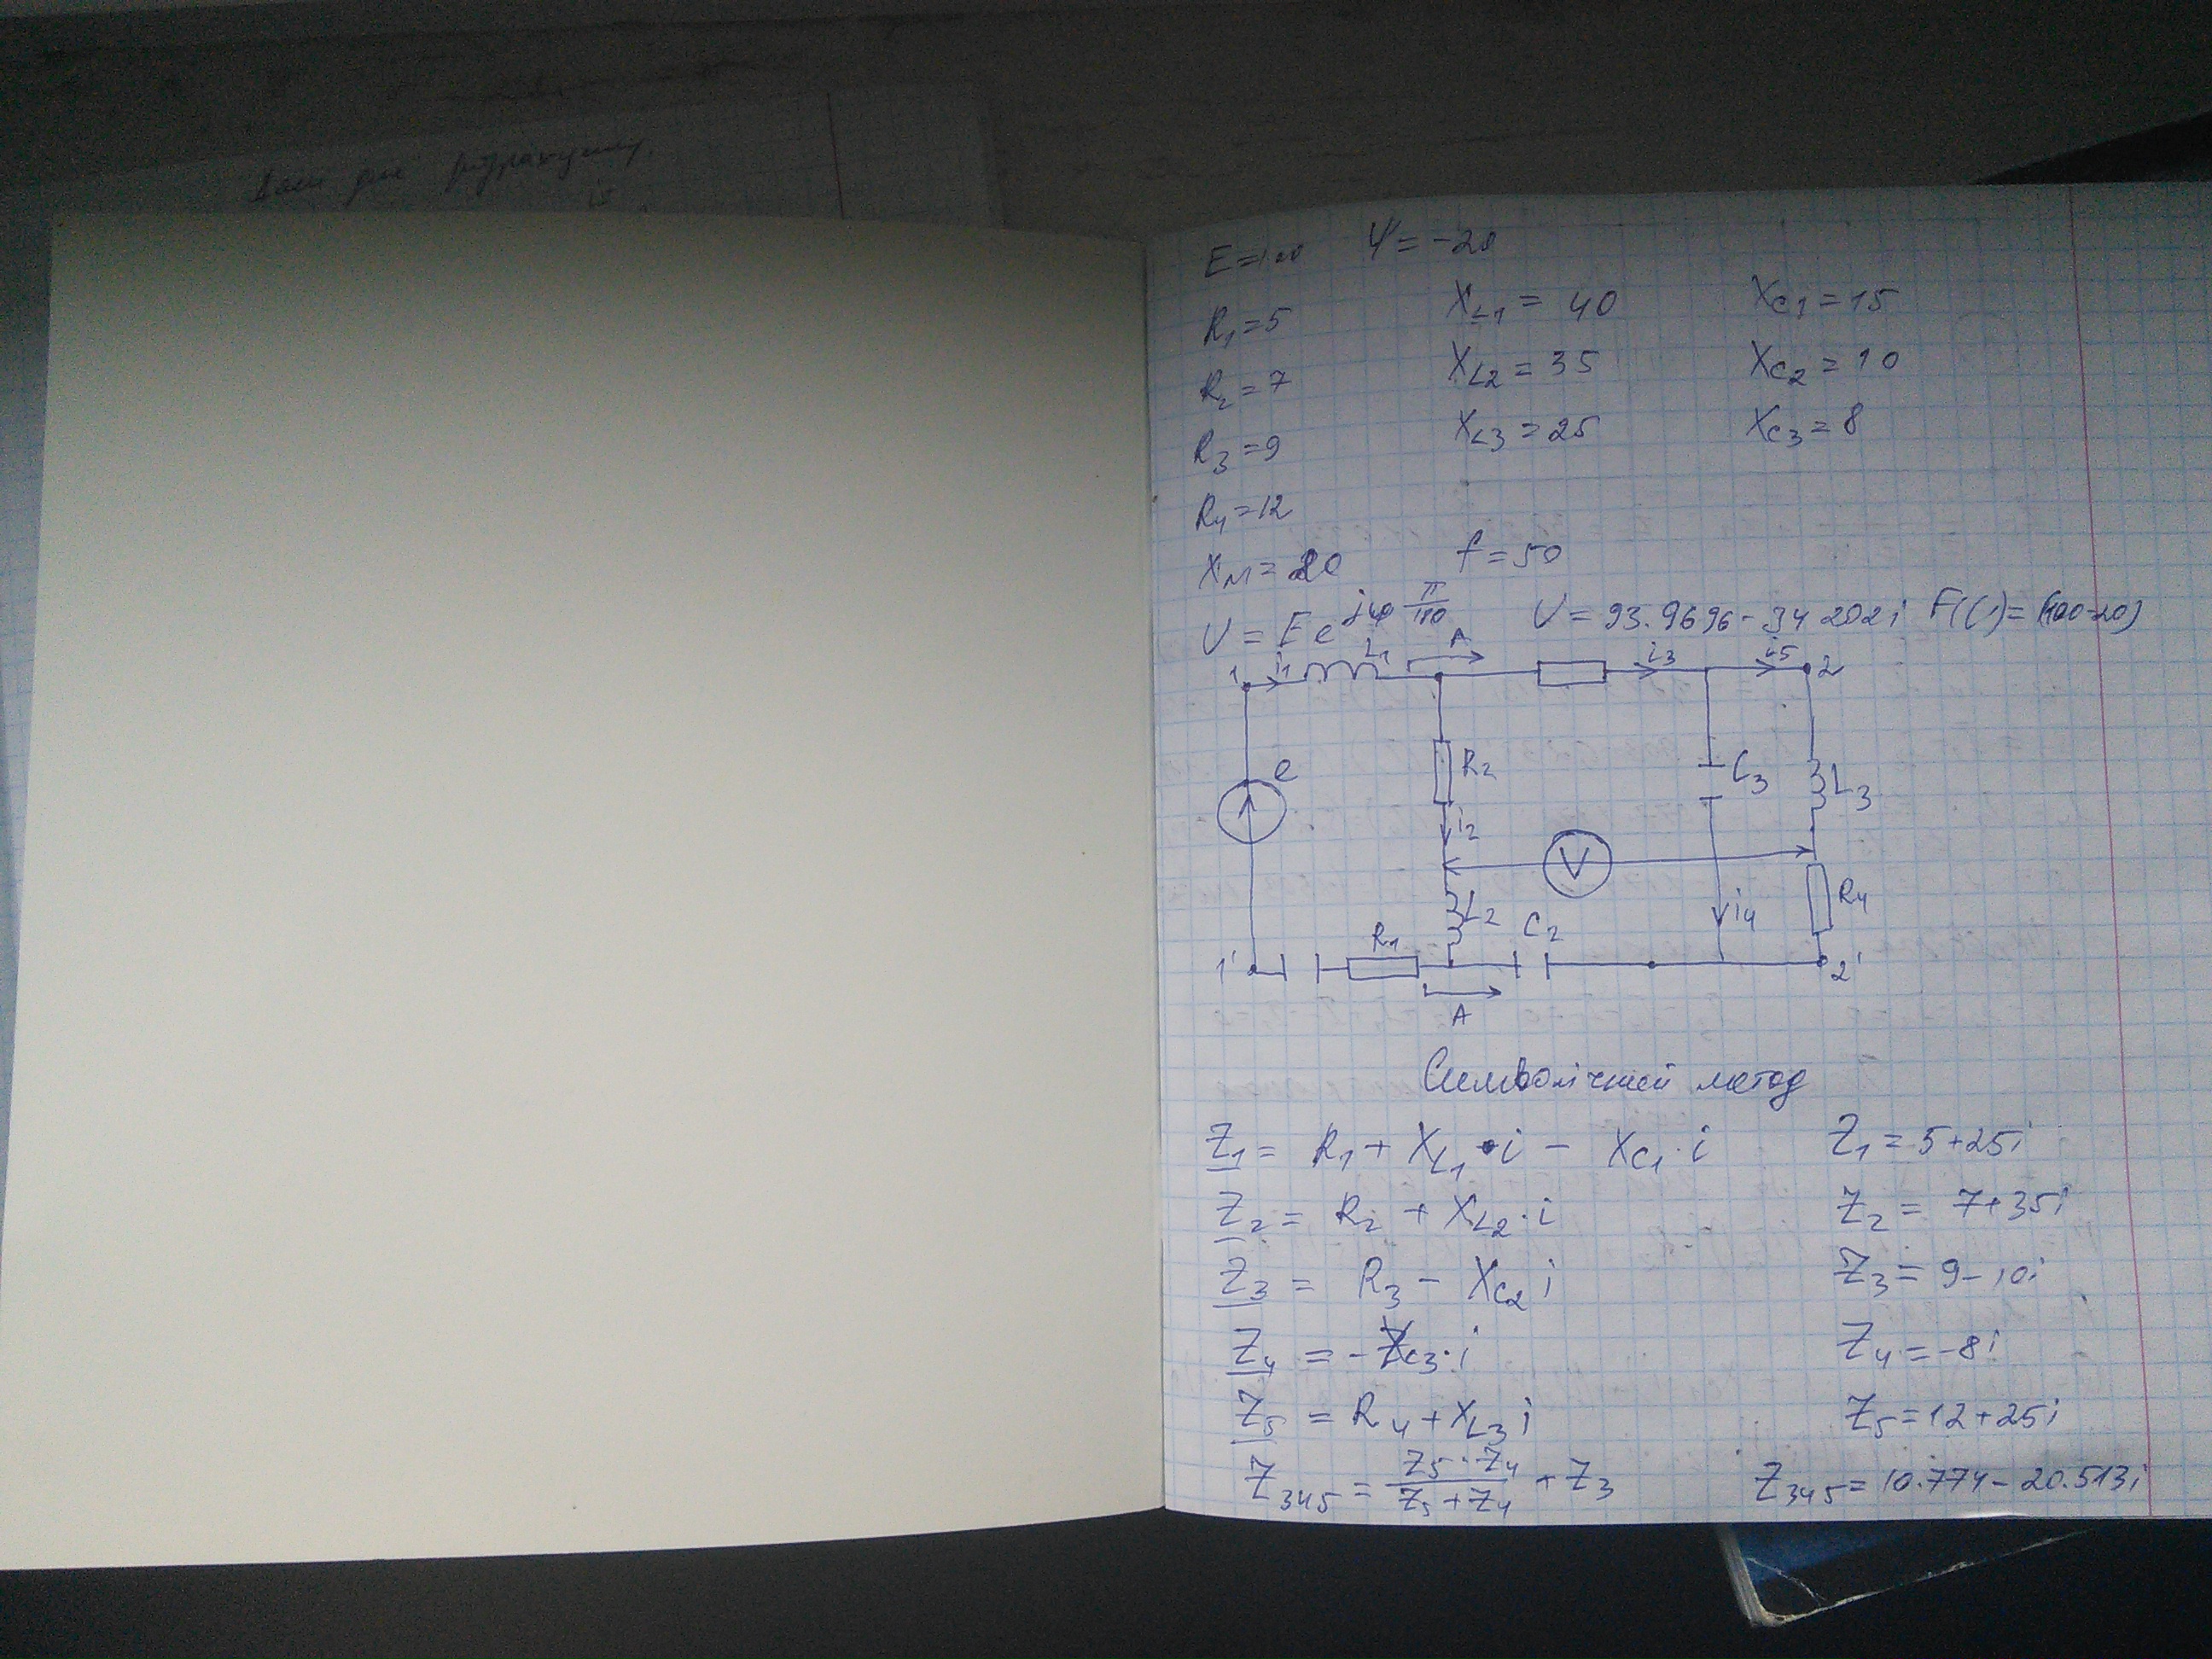 E=100 Ψ=-20
R₁=5 X_L1 = 40 X_C1 = 15
R₂=7 X_L2 = 35 X_C2 = 10
R₃=9 X_L3 = 25 X_C3 = 8
R₄=12
X_M = 20 f = 50
U = E e^(jφ π/180) U = 93.9696 - 34 202 i F(U) = (100 -20)
1 i₁ L₁ A i₃ i₅ 2
e R₂ C₃ L₃
i₂
V
L₂ i₄ R₄
1' R₁ C₂ 2'
A
Символічний метод
Z₁ = R₁ + X_L1 · i - X_C1 · i Z₁ = 5+25i
Z₂ = R₂ + X_L2 · i Z₂ = 7+35i
Z₃ = R₃ - X_C2 i Z₃ = 9-10i
Z₄ = -X_C3 · i Z₄ = -8i
Z₅ = R₄ + X_L3 i Z₅ = 12+25i
Z₃₄₅ = (Z₅ · Z₄)/(Z₅ + Z₄) + Z₃ Z₃₄₅ = 10.774 - 20.513i